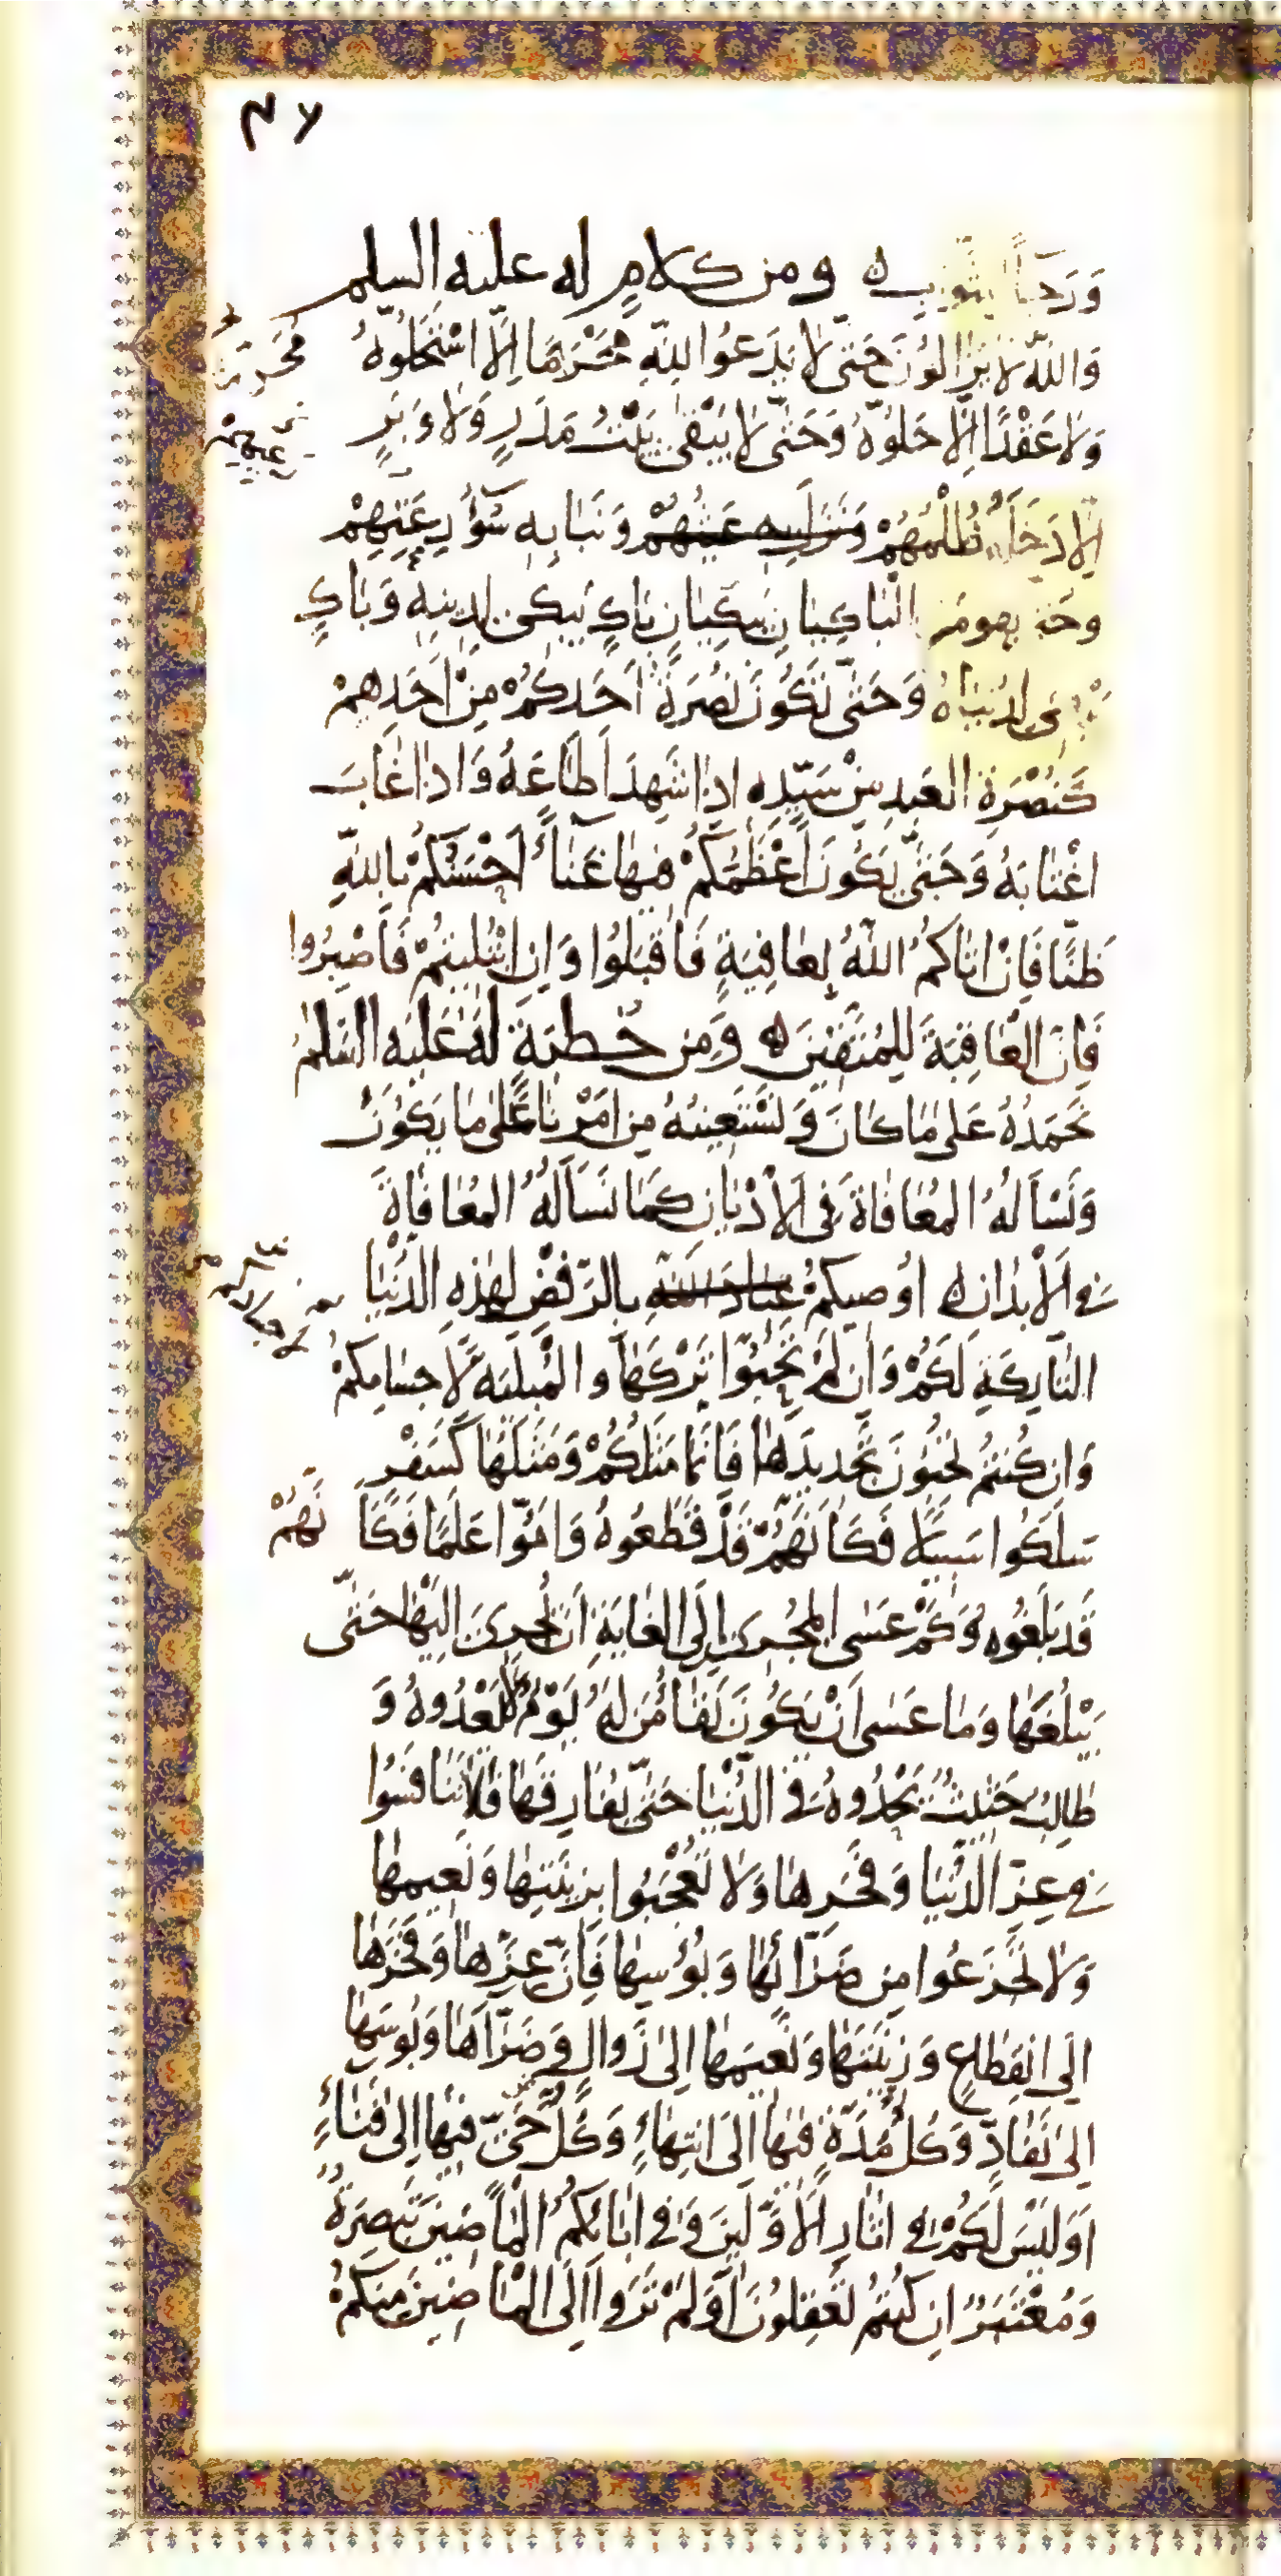 ٤٦
ومن كلام له عليه السلم
وَاللّٰهِ لَا يَزَالُونَ حَتّٰى لَا يَدَعُوا لِلّٰهِ مُحَرَّمًا اِلَّا اسْتَحَلُّوهُ
وَلَا عَقْدًا اِلَّا حَلُّوهُ وَحَتّٰى لَا يَبْقٰى بَيْتُ مَدَرٍ وَلَا وَبَرٍ
اِلَّا دَخَلَهُ ظُلْمُهُمْ وَنَبَا بِهِ سُوءُ رِعَتِهِمْ
الْبَاكِيَانِ يَبْكِيَانِ بَاكٍ يَبْكِى لِدِينِهِ وَبَاكٍ
لِدُنْيَاهُ وَحَتّٰى تَكُونَ نُصْرَةُ اَحَدِكُمْ مِنْ اَحَدِهِمْ
كَنُصْرَةِ الْعَبْدِ مِنْ سَيِّدِهِ اِذَا شَهِدَ اَطَاعَهُ وَاِذَا غَابَ
اغْتَابَهُ وَحَتّٰى يَكُونَ اَعْظَمُكُمْ فِيهَا غَنَاءً اَحْسَنُكُمْ بِاللّٰهِ
ظَنًّا فَاِنْ اَتَاكُمُ اللّٰهُ بِعَافِيَةٍ فَاقْبَلُوا وَاِنِ ابْتُلِيتُمْ فَاصْبِرُوا
فَاِنَّ الْعَاقِبَةَ لِلْمُتَّقِينَ ه وَمِن خُطبَةٍ لَهُ عَلَيْهِ السَّلٰمُ
نَحْمَدُهُ عَلٰى مَا كَانَ وَنَسْتَعِينُهُ مِنْ اَمْرِنَا عَلٰى مَا يَكُونُ
وَنَسْاَلُهُ الْمُعَافَاةَ فِى الْاَدْيَانِ كَمَا نَسْاَلُهُ الْمُعَافَاةَ
فِى الْاَبْدَانِ ه اُوصِيكُمْ عِبَادَ اللّٰهِ بِالرَّفْضِ لِهٰذِهِ الدُّنْيَا
التَّارِكَةِ لَكُمْ وَاِنْ لَمْ تُحِبُّوا تَرْكَهَا وَالْمُبْلِيَةِ لِاَجْسَامِكُمْ
وَاِنْ كُنْتُمْ تُحِبُّونَ تَجْدِيدَهَا فَاِنَّمَا مَثَلُكُمْ وَمَثَلُهَا كَسَفْرٍ
سَلَكُوا سَبِيلًا فَكَاَنَّهُمْ قَدْ قَطَعُوهُ وَاَمُّوا عَلَمًا فَكَاَ نَّهُمْ
قَدْ بَلَغُوهُ وَكَمْ عَسَى الْمُجْرِى اِلَى الْغَايَةِ اَنْ يَجْرِىَ اِلَيْهَا حَتّٰى
يَبْلُغَهَا وَمَا عَسٰى اَنْ يَكُونَ بَقَاءُ مَنْ لَهُ يَوْمٌ لَا يَعْدُوهُ وَ
طَالِبٌ حَثِيثٌ يَحْدُوهُ فِى الدُّنْيَا حَتّٰى يُفَارِقَهَا فَلَا تَنَافَسُوا
فِى عِزِّ الدُّنْيَا وَفَخْرِهَا وَلَا تُعْجَبُوا بِزِينَتِهَا وَنَعِيمِهَا
وَلَا تَجْزَعُوا مِنْ ضَرَّائِهَا وَبُؤْسِهَا فَاِنَّ عِزَّهَا وَفَخْرَهَا
اِلَى انْقِطَاعٍ وَزِينَتَهَا وَنَعِيمَهَا اِلٰى زَوَالٍ وَضَرَّاءَهَا وَبُؤسَهَا
اِلٰى نَفَادٍ وَكُلُّ مُدَّةٍ فِيهَا اِلَى انْتِهَاءٍ وَكُلُّ حَىٍّ فِيهَا اِلٰى فَنَاءٍ
اَوَلَيْسَ لَكُمْ فِى اٰثَارِ الْاَوَّلِينَ وَفِى اٰبَائِكُمُ الْمَاضِينَ تَبْصِرَةٌ
وَمُعْتَبَرٌ اِنْ كُنْتُمْ تَعْقِلُونَ اَوَلَمْ تَرَوْا اِلَى الْمَاضِينَ مِنْكُمْ